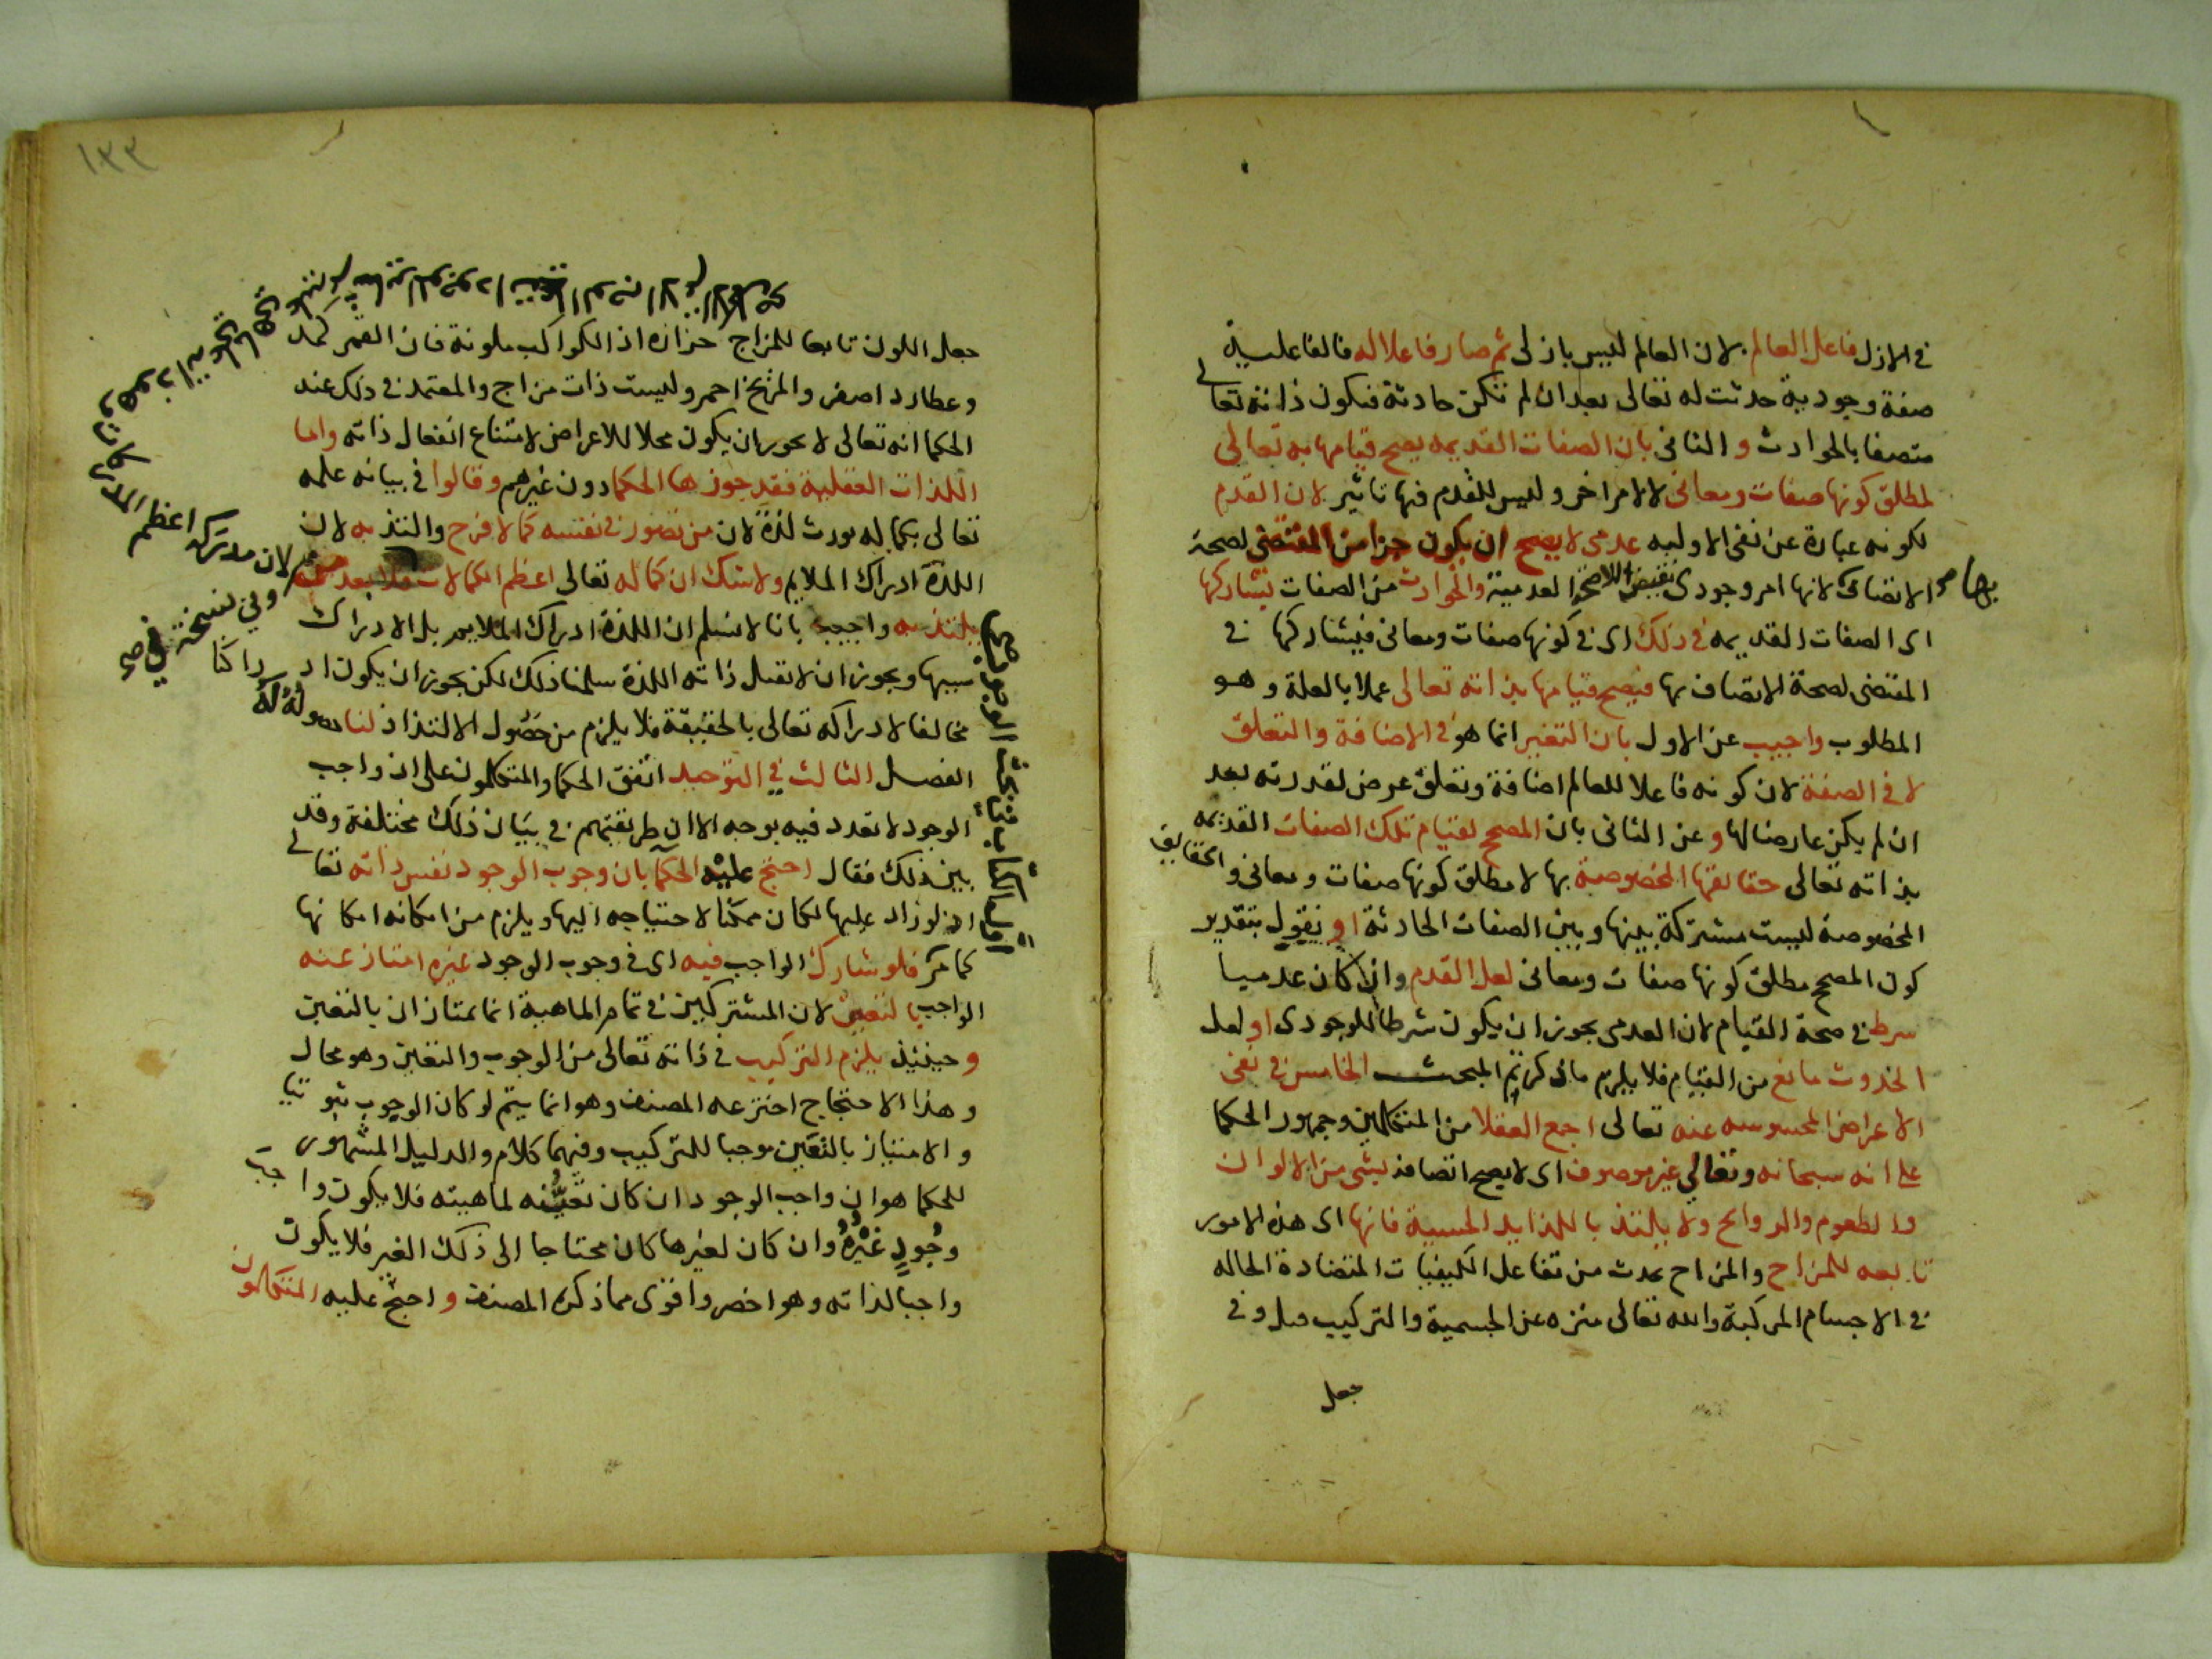 في الازل فاعل العالم لان العالم ليس بازلي ثم صار فاعلا له فالفاعلية
صفة وجودية حدثت له تعالى بعد ان لم تكن حادثة فيكون ذاته تعالى
متصفا بالحوادث والثاني بان الصفات القديمه يصح قيامها به تعالى
لمطلق كونها صفات ومعاني لا لامر اخر وليس للقدم فيها تاثير لان القدم
لكونه عبارة عن نفي الاوليه عدمي لا يصح ان يكون جزا من المقتضي لصحة
الاتصاف لانها امر وجودي نقيض اللاصحة العدمية والحوادث من الصفات تشاركها
بها صح
اى الصفات القديمه في ذلك اى في كونها صفات ومعاني فيشاركها في
المقتضى لصحة الاتصاف بها فيصح قيامها بذاته تعالى عملا بالعلة وهو
المطلوب واجيب عن الاول بان التغير انما هو في الاضافة والتعلق
لا في الصفة لان كونه فاعلا للعالم اضافة وتعلق عرض لقدرته بعد
ان لم يكن عارضا لها وعن الثاني بان المصحح لقيام تلك الصفات القديمه
بذاته تعالى حقائقها المخصوصة بها لا مطلق كونها صفات ومعاني والحقايق
المخصوصة ليست مشتركة بينها وبين الصفات الحادثة او نقول بتقدير
كون المصحح مطلق كونها صفات ومعاني لعل القدم وان كان عدميا
شرط في صحة القيام لان العدمى يجوز ان يكون شرطا للوجودى او لعل
الحدوث مانع من القيام فلا يلزم ما ذكرتم المبحث الخامس في نفى
الاعراض المحسوسه عنه تعالى اجمع العقلا من المتكلمين وجمهور الحكما
على انه سبحانه وتعالى غير موصوف اى لا يصح اتصافه بشى من الالوان
والطعوم والروائح ولا يلتذ باللذايد الحسية فانها اى هذه الامور
تابعه للمزاج والمزاج يحدث من تفاعل الكيفيات المتضادة الحاله
في الاجسام المركبة والله تعالى منزه عن الجسمية والتركيب قيل وفى
جعل
١٣٣
جعل اللون تابعا للمزاج حزازه اذ الكواكب ملونة فان القمر كمد
وعطارد اصفر والمريخ احمر وليست ذات مزاج والمعتمد في ذلك عند
الحكما انه تعالى لا يجوز ان يكون محلا للاعراض لامتناع انفعال ذاته واما
اللذات العقلية فقد جوزها الحكما دون غيرهم وقالوا في بيانه علمه
تعالى بكماله يورث لذة لان من تصور في نفسه كمالا فرح والتذ به لان
اللذة ادراك الملايم ولا شك ان كماله تعالى اعظم الكمالات فلا بعد
يلتذ به واجيب بانا لا نسلم ان اللذة ادراك الملايم بل الادراك
سببها ويجوز ان لا تقبل ذاته اللذة سلمنا ذلك لكن يجوز ان يكون ادراكنا
مخالفا لادراكه تعالى بالحقيقة فلا يلزم من حصول الالتذاذ لنا حصوله له
الفصل الثالث في التوحيد اتفق الحكما والمتكلمون على ان واجب
الوجود لا تعدد فيه بوجه الا ان طريقتهم في بيان ذلك مختلفة وقد
بين ذلك فقال احتج عليه الحكما بان وجوب الوجود نفس ذاته تعالى
اذ لو زاد عليها لكان ممكنا لاحتياجه اليها ويلزم من امكانه امكانها
كما مر فلو شارك الواجب فيه اى في وجوب الوجود غيره امتاز عنه
الواجب بالتعين لان المشتركين في تمام الماهية انما يمتازان بالتعين
وحينئذ يلزم التركيب في ذاته تعالى من الوجوب والتعين وهو محال
وهذا الاحتجاج اخترعه المصنف وهو انما يتم لو كان الوجوب ثبوتيا
والامتياز بالتعين موجبا للتركيب وفيهما كلام والدليل المشهور
للحكما هو ان واجب الوجود ان كان تعينه لماهيته فلا يكون واجب
وجود غيره وان كان لغيرها كان محتاجا الى ذلك الغير فلا يكون
واجبا لذاته وهو اخصر واقوى مما ذكره المصنف واحتج عليه المتكلمون
لان مدركه اعظم
وفي نسخة